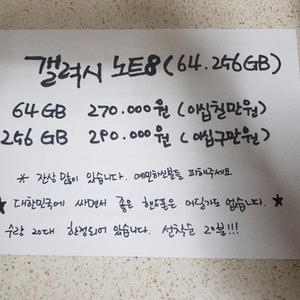 갤럭시 노트8(64.256GB)
64GB 270.000원 (이십칠만원)
256GB 290.000원 (이십구만원)
* 잔상 많이 있습니다. 예민하신분들 피해주세요.
★ 대한민국에 싸면서 좋은 핸드폰은 어딜가도 없습니다. ★
수량 20대 한정되어 있습니다. 선착순 20분!!!